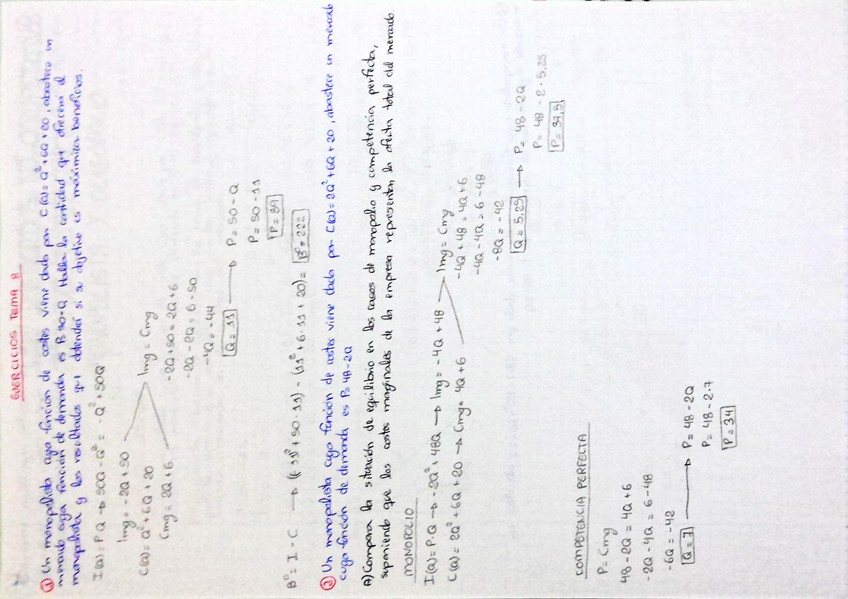 EJERCICIOS TEMA 8
① Un monopolista cuya función de costes viene dada por C(Q)= Q²+6Q+20, abastece un
mercado cuya función de demanda es P=50-Q. Hallar la cantidad que ofrecerá el
monopolista y los resultados que obtendrá si su objetivo es maximizar beneficios.
I(Q)= P·Q → 50Q - Q² = -Q² + 50Q
Img = -2Q + 50
C(Q)= Q² + 6Q + 20
Cmg = 2Q + 6
Img = Cmg
-2Q + 50 = 2Q + 6
-2Q - 2Q = 6 - 50
-4Q = -44
Q = 11 → P = 50 - Q
P = 50 - 11
P = 39
Bº = I - C → (-11² + 50·11) - (11² + 6·11 + 20) = Bº = 222
② Un monopolista cuya función de costes viene dada por C(Q)= 2Q²+6Q+20, abastece un mercado
cuya función de demanda es P= 48-2Q
A) Compara la situación de equilibrio en los casos de monopolio y competencia perfecta,
suponiendo que los costes marginales de la empresa representan la oferta total del mercado.
MONOPOLIO
I(Q) = P·Q → -2Q² + 48Q → Img = -4Q + 48
C(Q) = 2Q² + 6Q + 20 → Cmg = 4Q + 6
Img = Cmg
-4Q + 48 = 4Q + 6
-4Q - 4Q = 6 - 48
-8Q = -42
Q = 5,25 → P = 48 - 2Q
P = 48 - 2·5,25
P = 37,5
COMPETENCIA PERFECTA
P = Cmg
48 - 2Q = 4Q + 6
-2Q - 4Q = 6 - 48
-6Q = -42
Q = 7 → P = 48 - 2Q
P = 48 - 2·7
P = 34